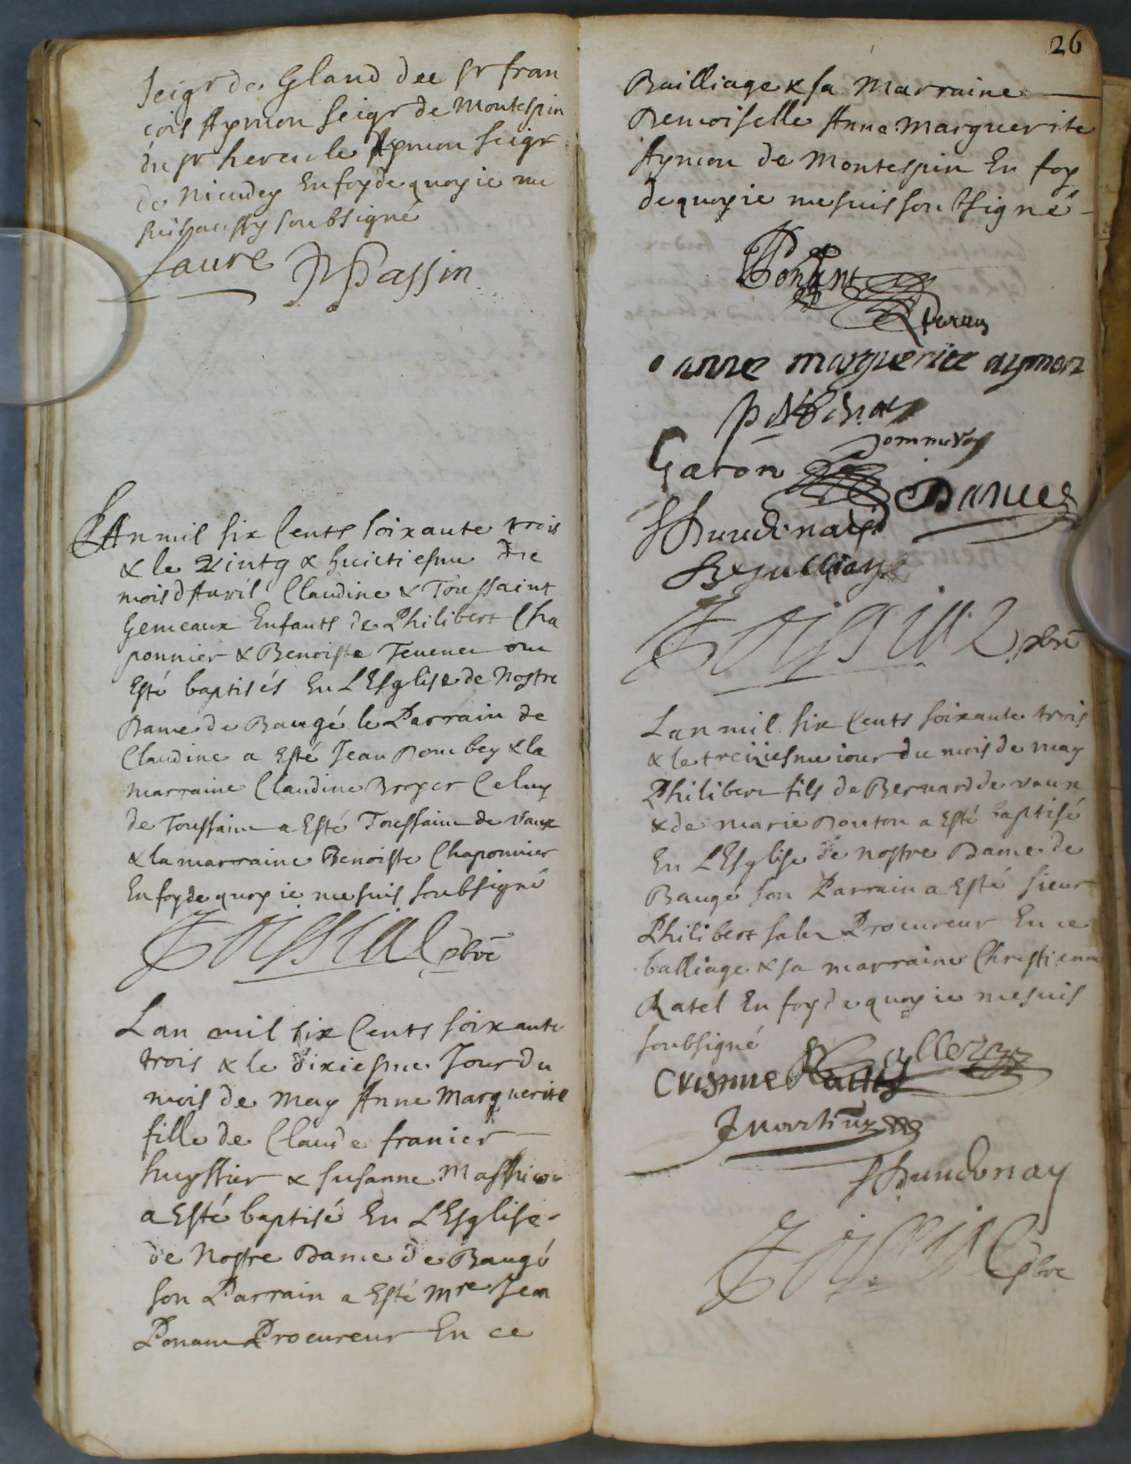 seigr de Gland dee sr fran
cois Aymon seigr de Montespin
du sr hercule Aymon seigr
de En foy de quoy ie me
suis aussy soubsigné
faure Passin
L'An mil six Cents soixante trois
& le vintg & huictiesme de
mois d'Avril Claudine & Toussaint
Gemeaux Enfants de Philibert Cha
ponnier & Benoiste Tevenet ont
Esté baptisés En L'Esglise de Nostre
Dame de Baugé le Parrain de
Claudine a Esté Jean Dombey & la
marraine Claudine Broyer Celuy
de Toussaint a Esté Toussaint de vaux
& la marraine Benoiste Chaponnier
En foy de quoy ie me suis soubsigné
pbre
Lan mil six Cents soixante
trois & le dixiesme Jour du
mois de may Anne Marguerite
fille de Claude franier
huyssier & susanne Mathieu
a Esté baptisé En L'Esglise
de Nostre Dame de Baugé
son Parrain a Esté Mre Jean
Ponant Procureur En ce
26
Bailliage & sa Marraine
Demoiselle Anne Marguerite
Aymon de Montespin En foy
de quoy ie me suis soubsigné
Ponant
anne marguerite aymon
Garon
pbre
Lan mil six Cents soixante trois
& le treiziesme iour du mois de may
Philibert fils de Bernard de vaux
& de marie Bouton a Esté baptisé
En L'Esglise de nostre Dame de
Baugé son Parrain a Esté sieur
Philibert Procureur En ce
balliage & sa marraine Christienne
Ratel En foy de quoy ie me suis
soubsigné
pbre